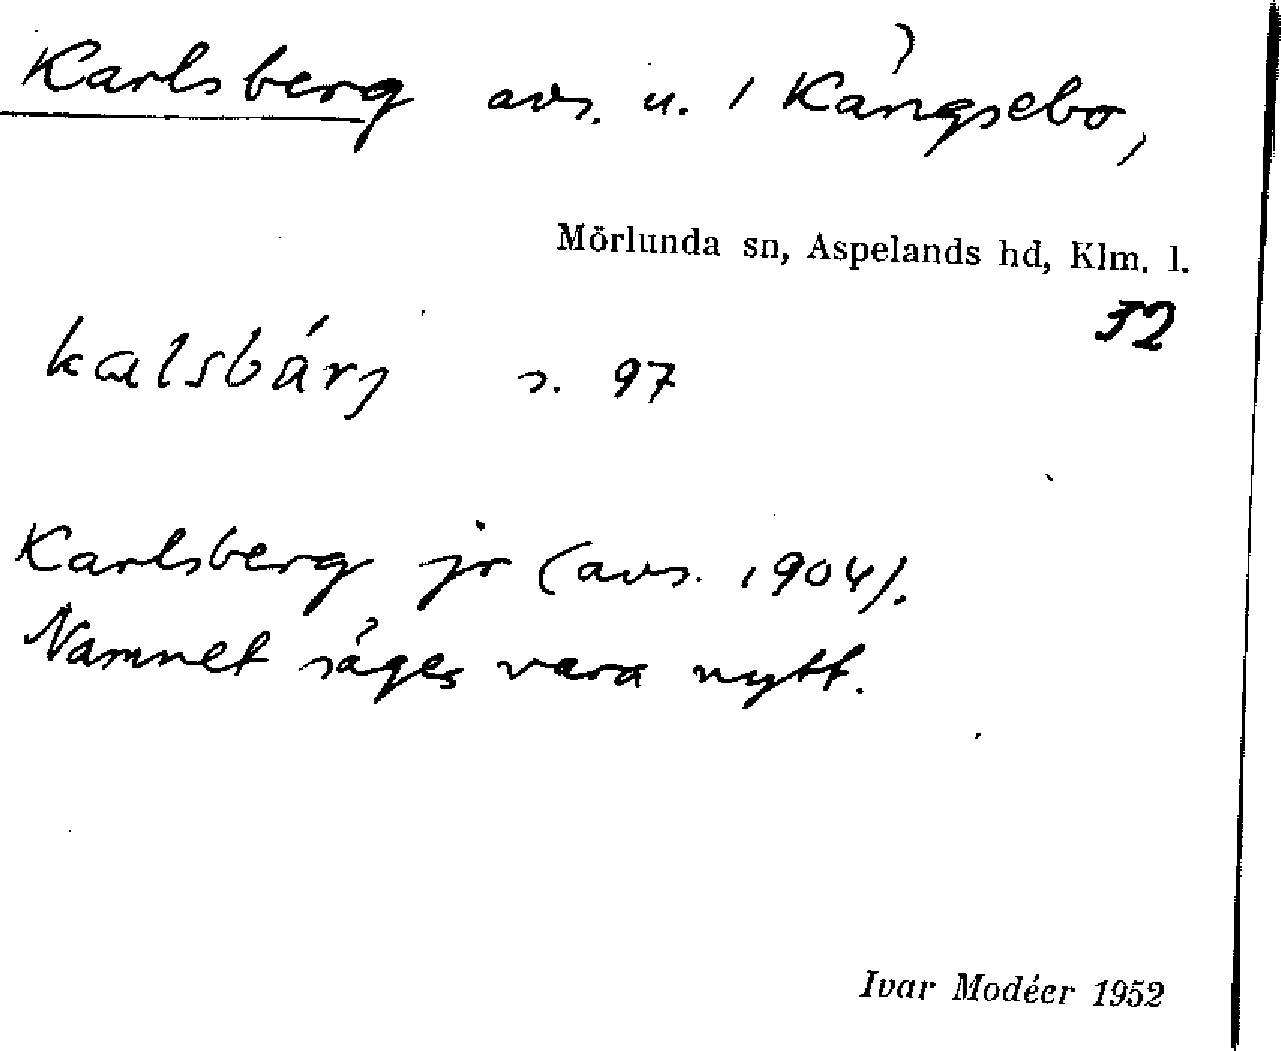 Karlsberg avs. u. 1 Kångsebo,
Mörlunda sn, Aspelands hd, Klm. l.
32
kalsbárj s. 97
Karlsberg jr (avs. 1904).
Namnet säges vara nytt.
Ivar Modéer 1952